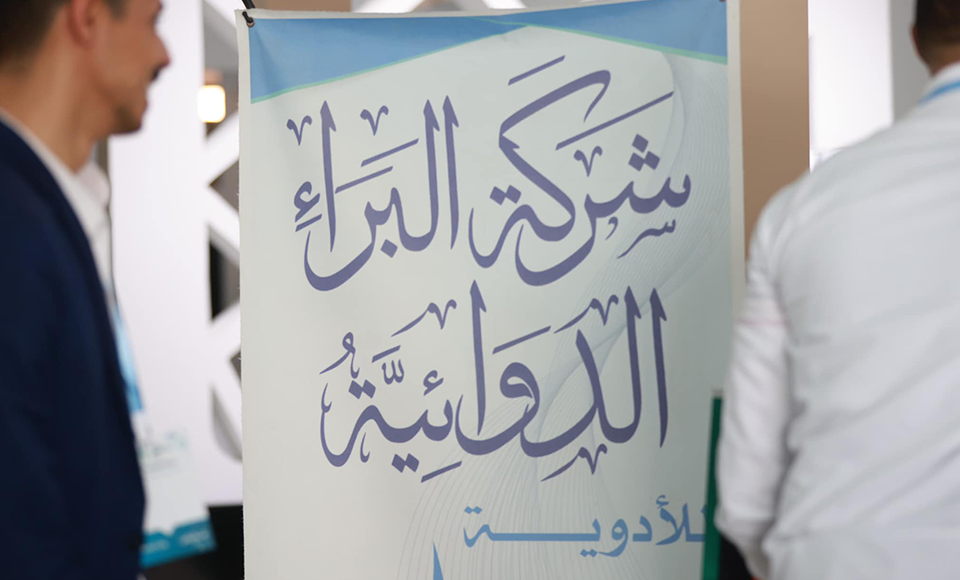 شركة البراء
الدوائية
للأدوية